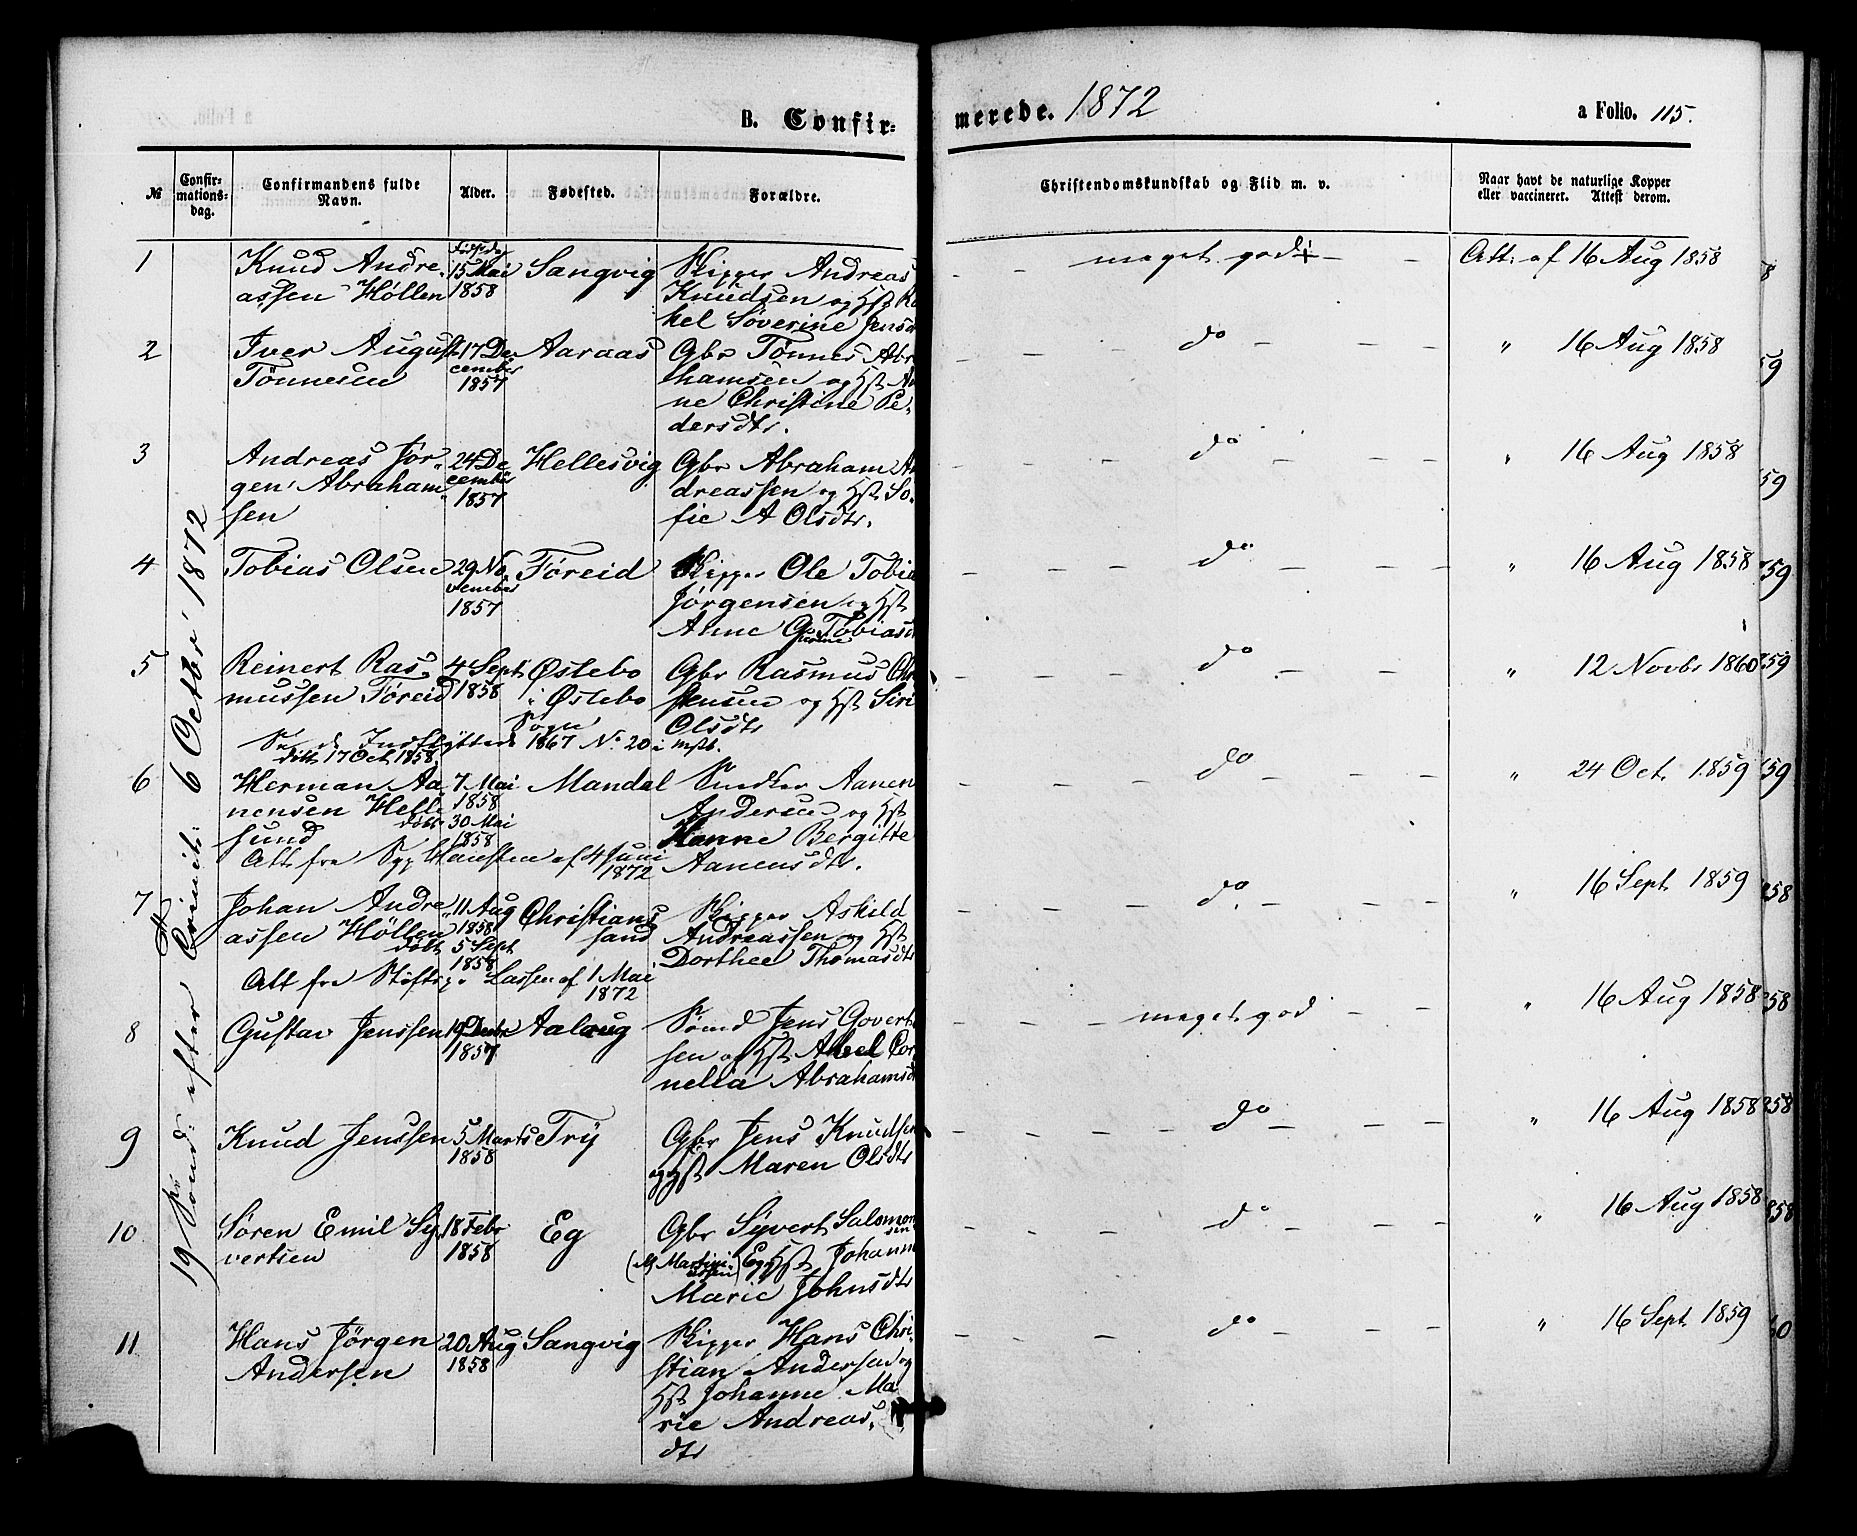 B. Confir-
merede. 1872
a Folio. 115.
№
Confir-
mations-
dag.
Confirmandens fulde
Navn.
Alder.
Fødested.
Forældre.
Christendomskundskab og Flid m. v.
Naar havt de naturlige Kopper
eller vaccineret. Attest derom.
19 Sønd: efter Trinit: 6 Octbr 1872
1
Knud Andre-
assen Høllen
15 Mai
1858
Sangvig
Skipper Andreas
Knudsen og Hst Ra
kel Søverine Jensd
maget god
Att. af 16 Aug 1858
2
Iver August
Tönnesen
17 De
cember
1857
Aaraas
Gbr Tönnes Abr
hamsen og Hst An
ne Christine Pe-
dersdtr.
do
" 16 Aug 1858
3
Andreas Jør-
gen Abraham-
sen
24 De
cember
1857
Hellesvig
Gbr Abraham An
dreassen og Hst So-
fie A Olsdtr.
do
" 16 Aug 1858
4
Tobias Olsen
29 No
vember
1857
Føreid
Skipper Ole Tobia
Jørgensen og Hst
Anne Gurine Tobiasd
do
" 16 Aug 1858
5
Reinert Ras-
mussen Føreid
4 Sept
1858
Østebo
i Østebo
Sogn
Gbr Rasmus Chri
stensen og Hst Siri
Olsdtr
Se de Indflyttede 1867 No 20 i mpt.
døbt 17 Oct 1858
do
" 12 Novbr 1860
6
Herman Aa-
nensen Helle
sund
7 Mai
1858
døbt 30 Mai
1858
Mandal
Snedker Aanen
Andersen og Hst
Hanne Bergitte
Aanensdtr.
Att fra Sgp Hansten af 4 Juni
1872
do
" 24 Oct. 1859
7
Johan Andre-
assen Höllen
11 Aug
1858
døbt 5 Sept
1858
Christians
sand
Skipper Askild
Andreassen og Hst
Dorthee Thomasdtr
Att fra Stiftsp. Lassen af 1 Mai
1872
do.
" 16 Sept 1859
8
Gustav Jenssen
19 Decbr
1857
Aalaug
Sømd Jens Govert
sen og Hst Abel Cor
nelia Abrahamsd
maget god
" 16 Aug 1858
9
Knud Jenssen
5 Marts
1858
Try
Gbr Jens Knudsen
og Hst Maren Olsdtr
do
" 16 Aug 1858
10
Søren Emil Sy-
vertsen
18 Febr
1858
Eg
Gbr Syvert Salomon
sen
(M Martini-
ussen) Eg og Hst Johann
Marie Johnsdtr
do
" 16 Aug 1858
11
Hans Jörgen
Andersen
20 Aug
1858
Sangvig
Skipper Hans Chri-
stian Andersen og
Hst Johanne Ma
rie Andreas-
dtr
do
" 16 Sept 1859